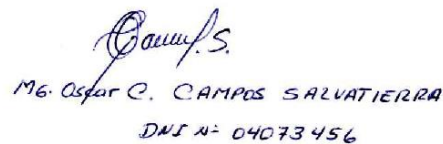 Mg. Oscar C. CAMPOS SALVATIERRA
DNI Nº 04073456